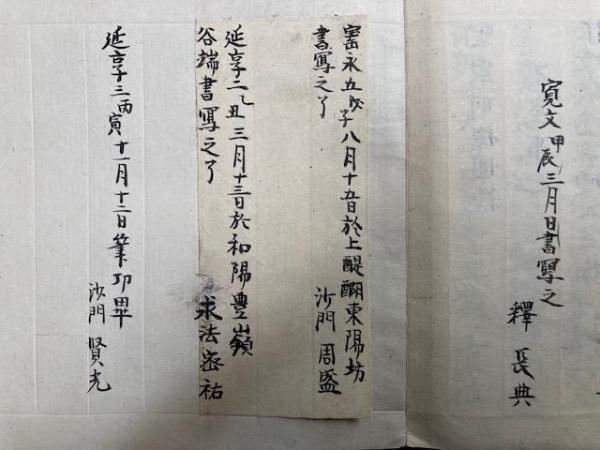 寛文甲辰三月日書寫之
釋 長典
寳永五戊子八月十五日於上醍醐東陽坊
書寫之了 沙門 周盛
延享二乙丑三月十三日於和陽豊嶺
谷端書寫之了 求法密祐
延享三丙寅十一月十二日筆功畢
沙門 賢光